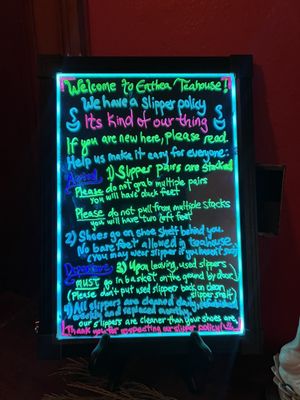 Welcome to Enthea Teahouse!
We have a slipper policy
It's kind of our thing
If you are new here, please read.
Help us make it easy for everyone:
Arrival 1) Slipper pairs are stacked
Please do not grab multiple pairs
you will have duck feet
Please do not pull from multiple stacks
you will have two left feet
2) Shoes go on shoe shelf behind you.
No bare feet allowed in teahouse.
(You may wear slipper if you haven't
Departure 3) Upon leaving, used slippers
MUST go in basket on the ground by door!
(Please don't put used slippers back on clean
slipper shelf)
All slippers are cleaned daily,
and replaced monthly
our slippers are cleaner than your shoes are
Thank you for respecting our slipper policy!